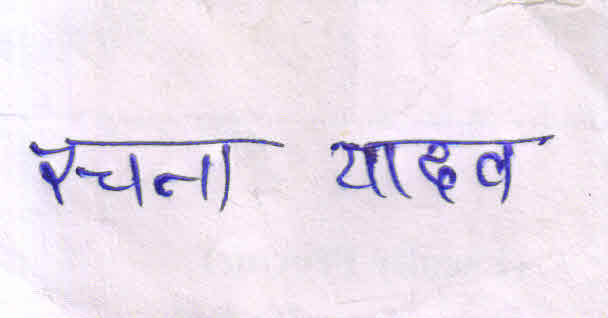 रचना यादव